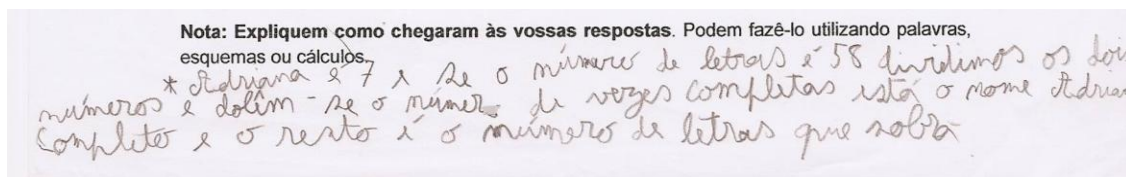 Nota: Expliquem como chegaram às vossas respostas. Podem fazê-lo utilizando palavras,
esquemas ou cálculos.
* Adriana é 7 e se o número de letras é 58 dividimos os doi
números e -se o númer de vezes completas está o nome Adrian
completo e o resto é o número de letras que sobra